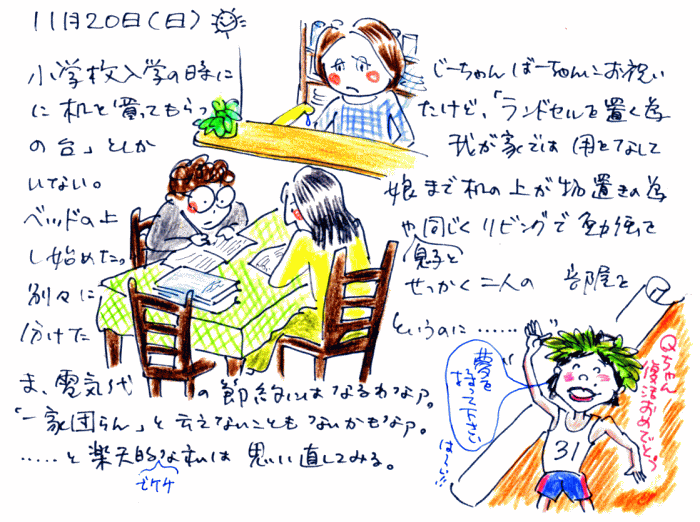 11月20日(日)
小学校入学の時に じーちゃんばーちゃんにお祝い
に机を買ってもらっ たけど、「ランドセルを置く為
の台」としか 我が家では用をなして
いない。 娘まで机の上が物置きの為
ベッドの上 や、同じくリビングで勉強を
息子と
し始めた。 せっかく二人の部屋を
別々に
分けた というのに……
ま、電気代の節約にはなるわなァ。
「一家団らん」と云えないこともないかもなァ。
……と楽天的な私は思い直してみる。
どケチ
"夢を
持って下さい"
はーい!!
Qちゃん
復活おめでとう
31